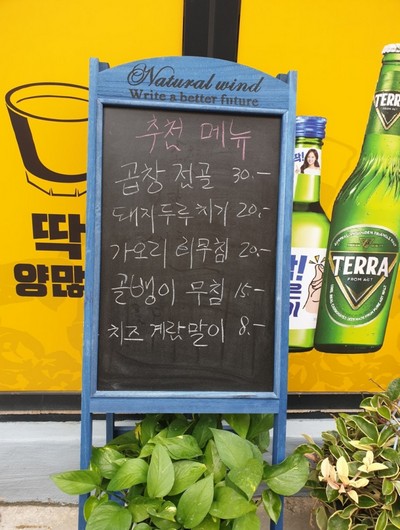 Natural wind
Write a better future
추천 메뉴
곱창 전골 30.-
돼지두루치기 20.-
가오리 회무침 20.-
골뱅이 무침 15.-
치즈 계란말이 8.-
딱
양많
TERRA
TERRA
FROM AGT